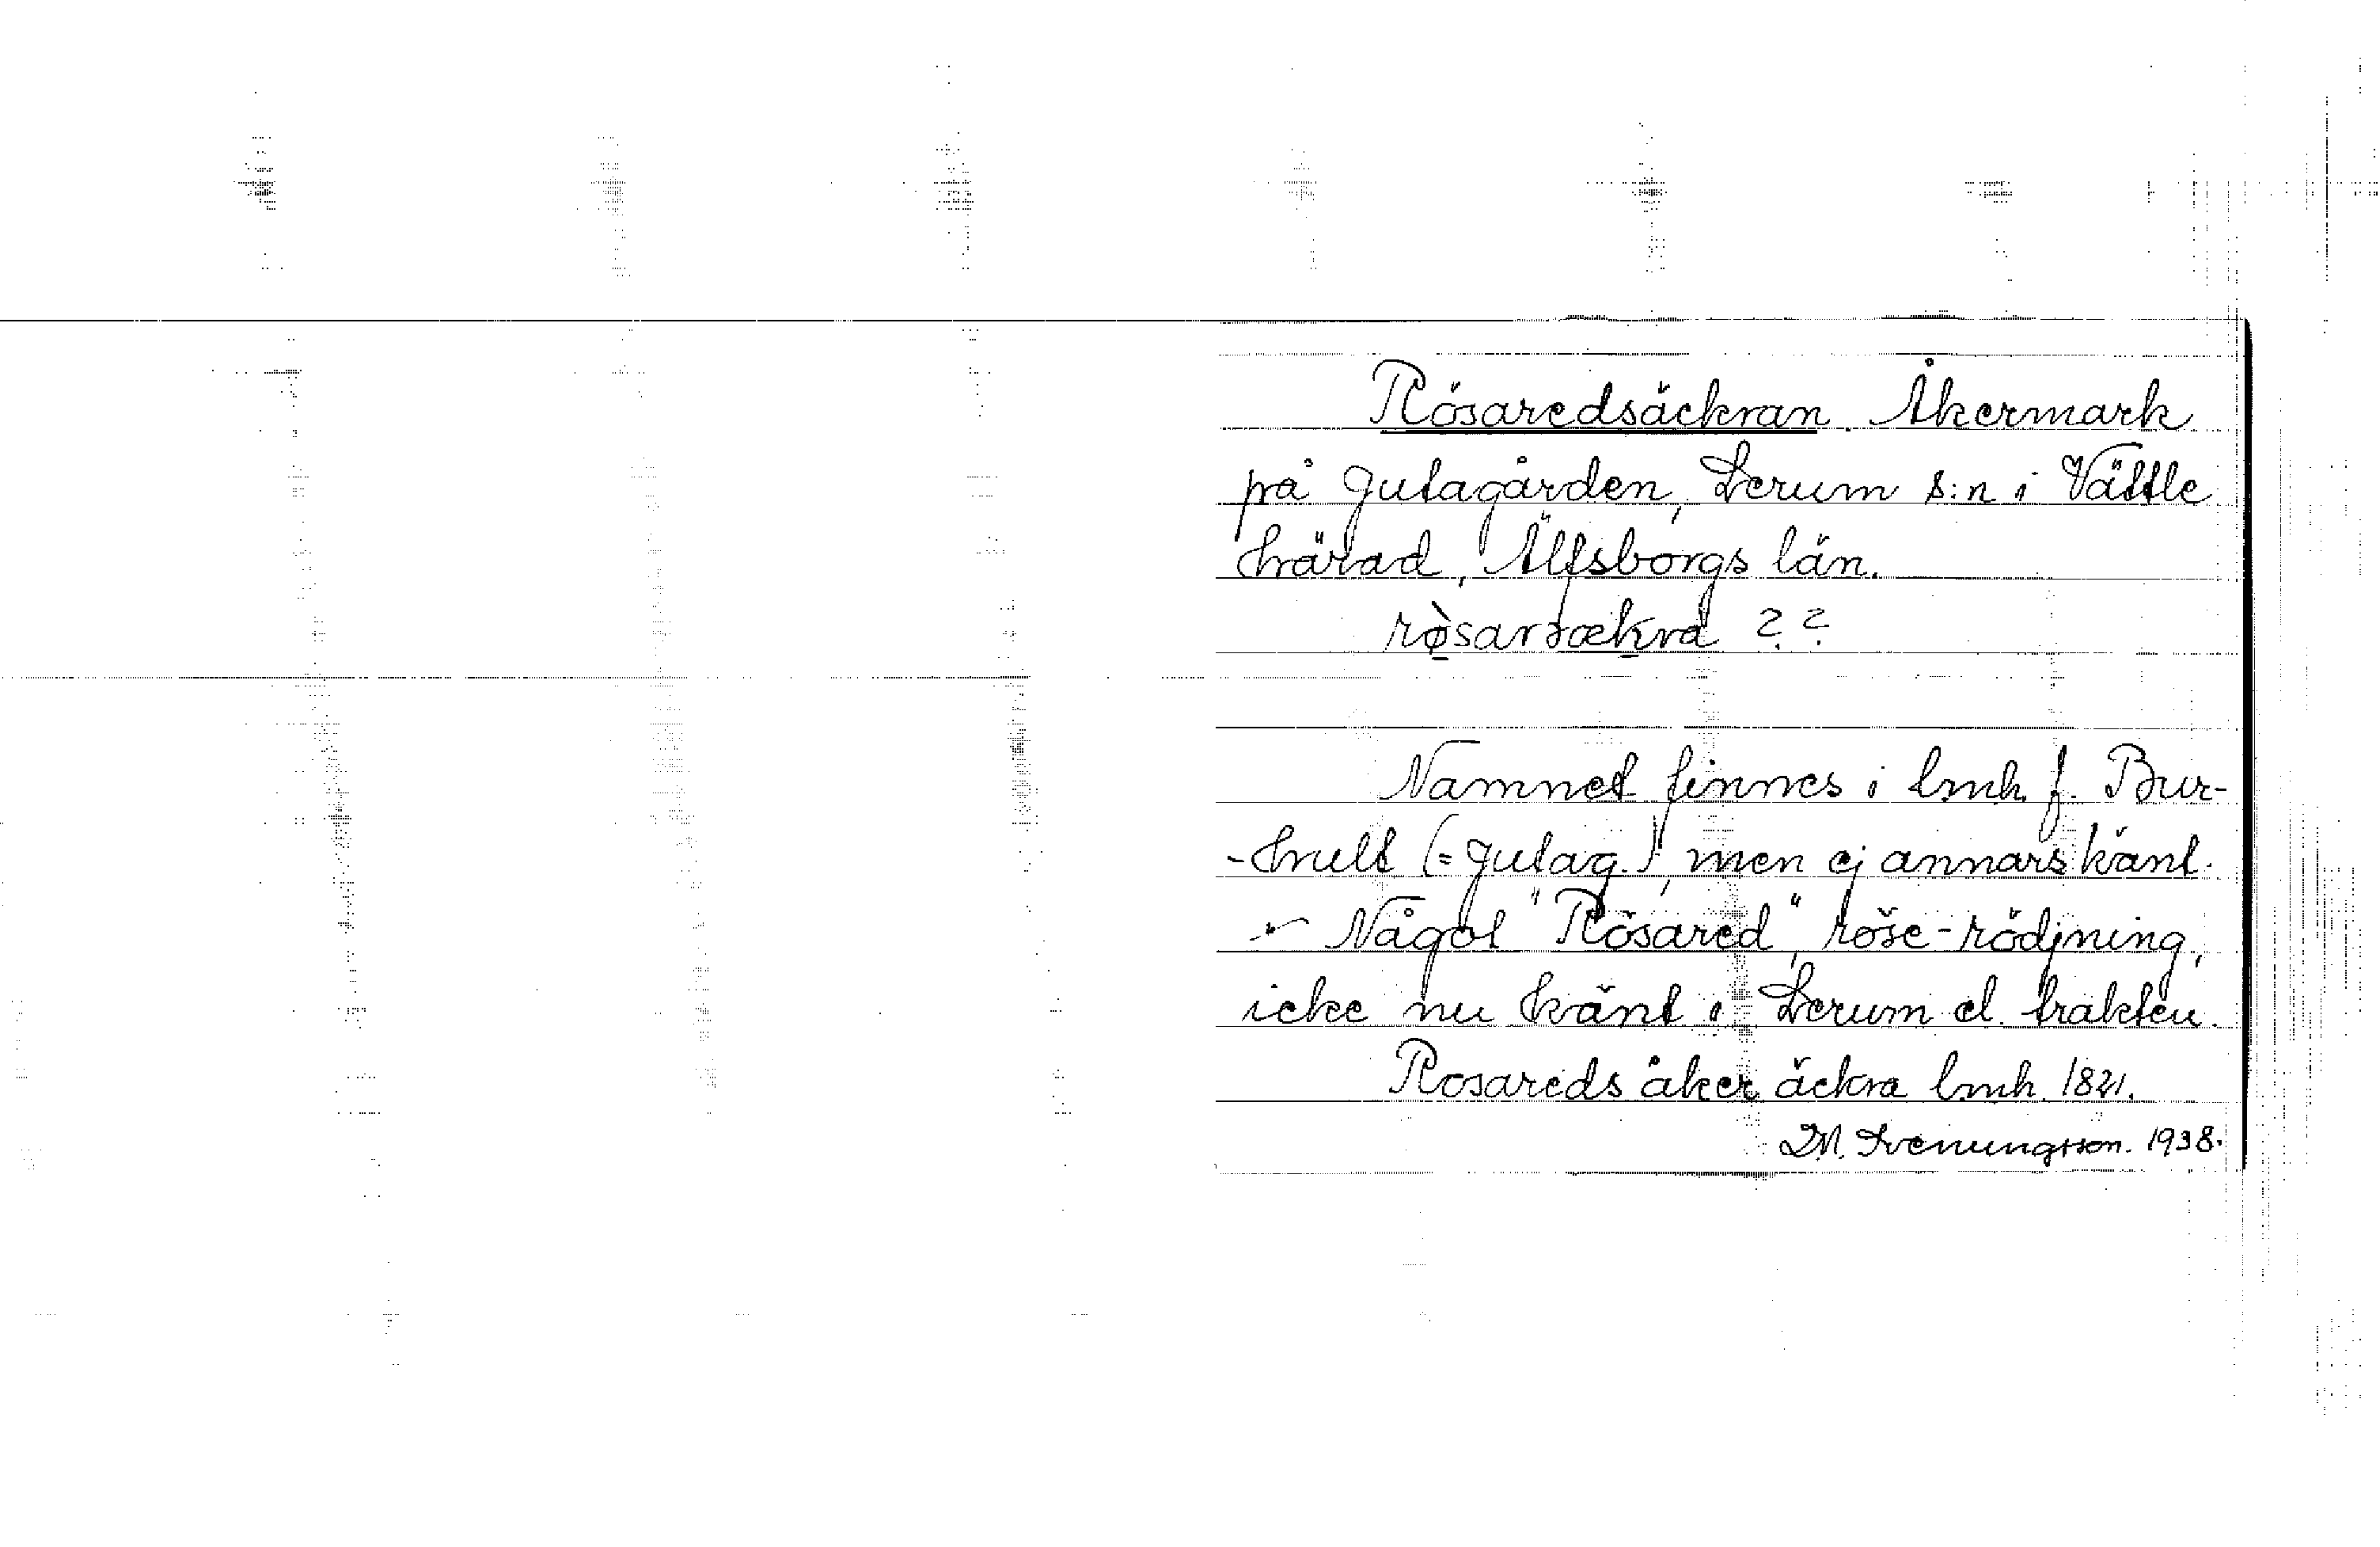 Rösaredsäckran. Åkermark
på Gutagården, Lerum s:n i Vättle
härad, Älfsborgs län.
rø̀sarsækra ??
Namnet finnes i lmh. f. Bur-
-hult (= Gutag.), men ej annars känt.
Något "Rösared", röse-rödjning,
icke nu känt i Lerum el. trakten.
Rosareds åker äckra lmh. 1821.
M. Svenungsson. 1938.